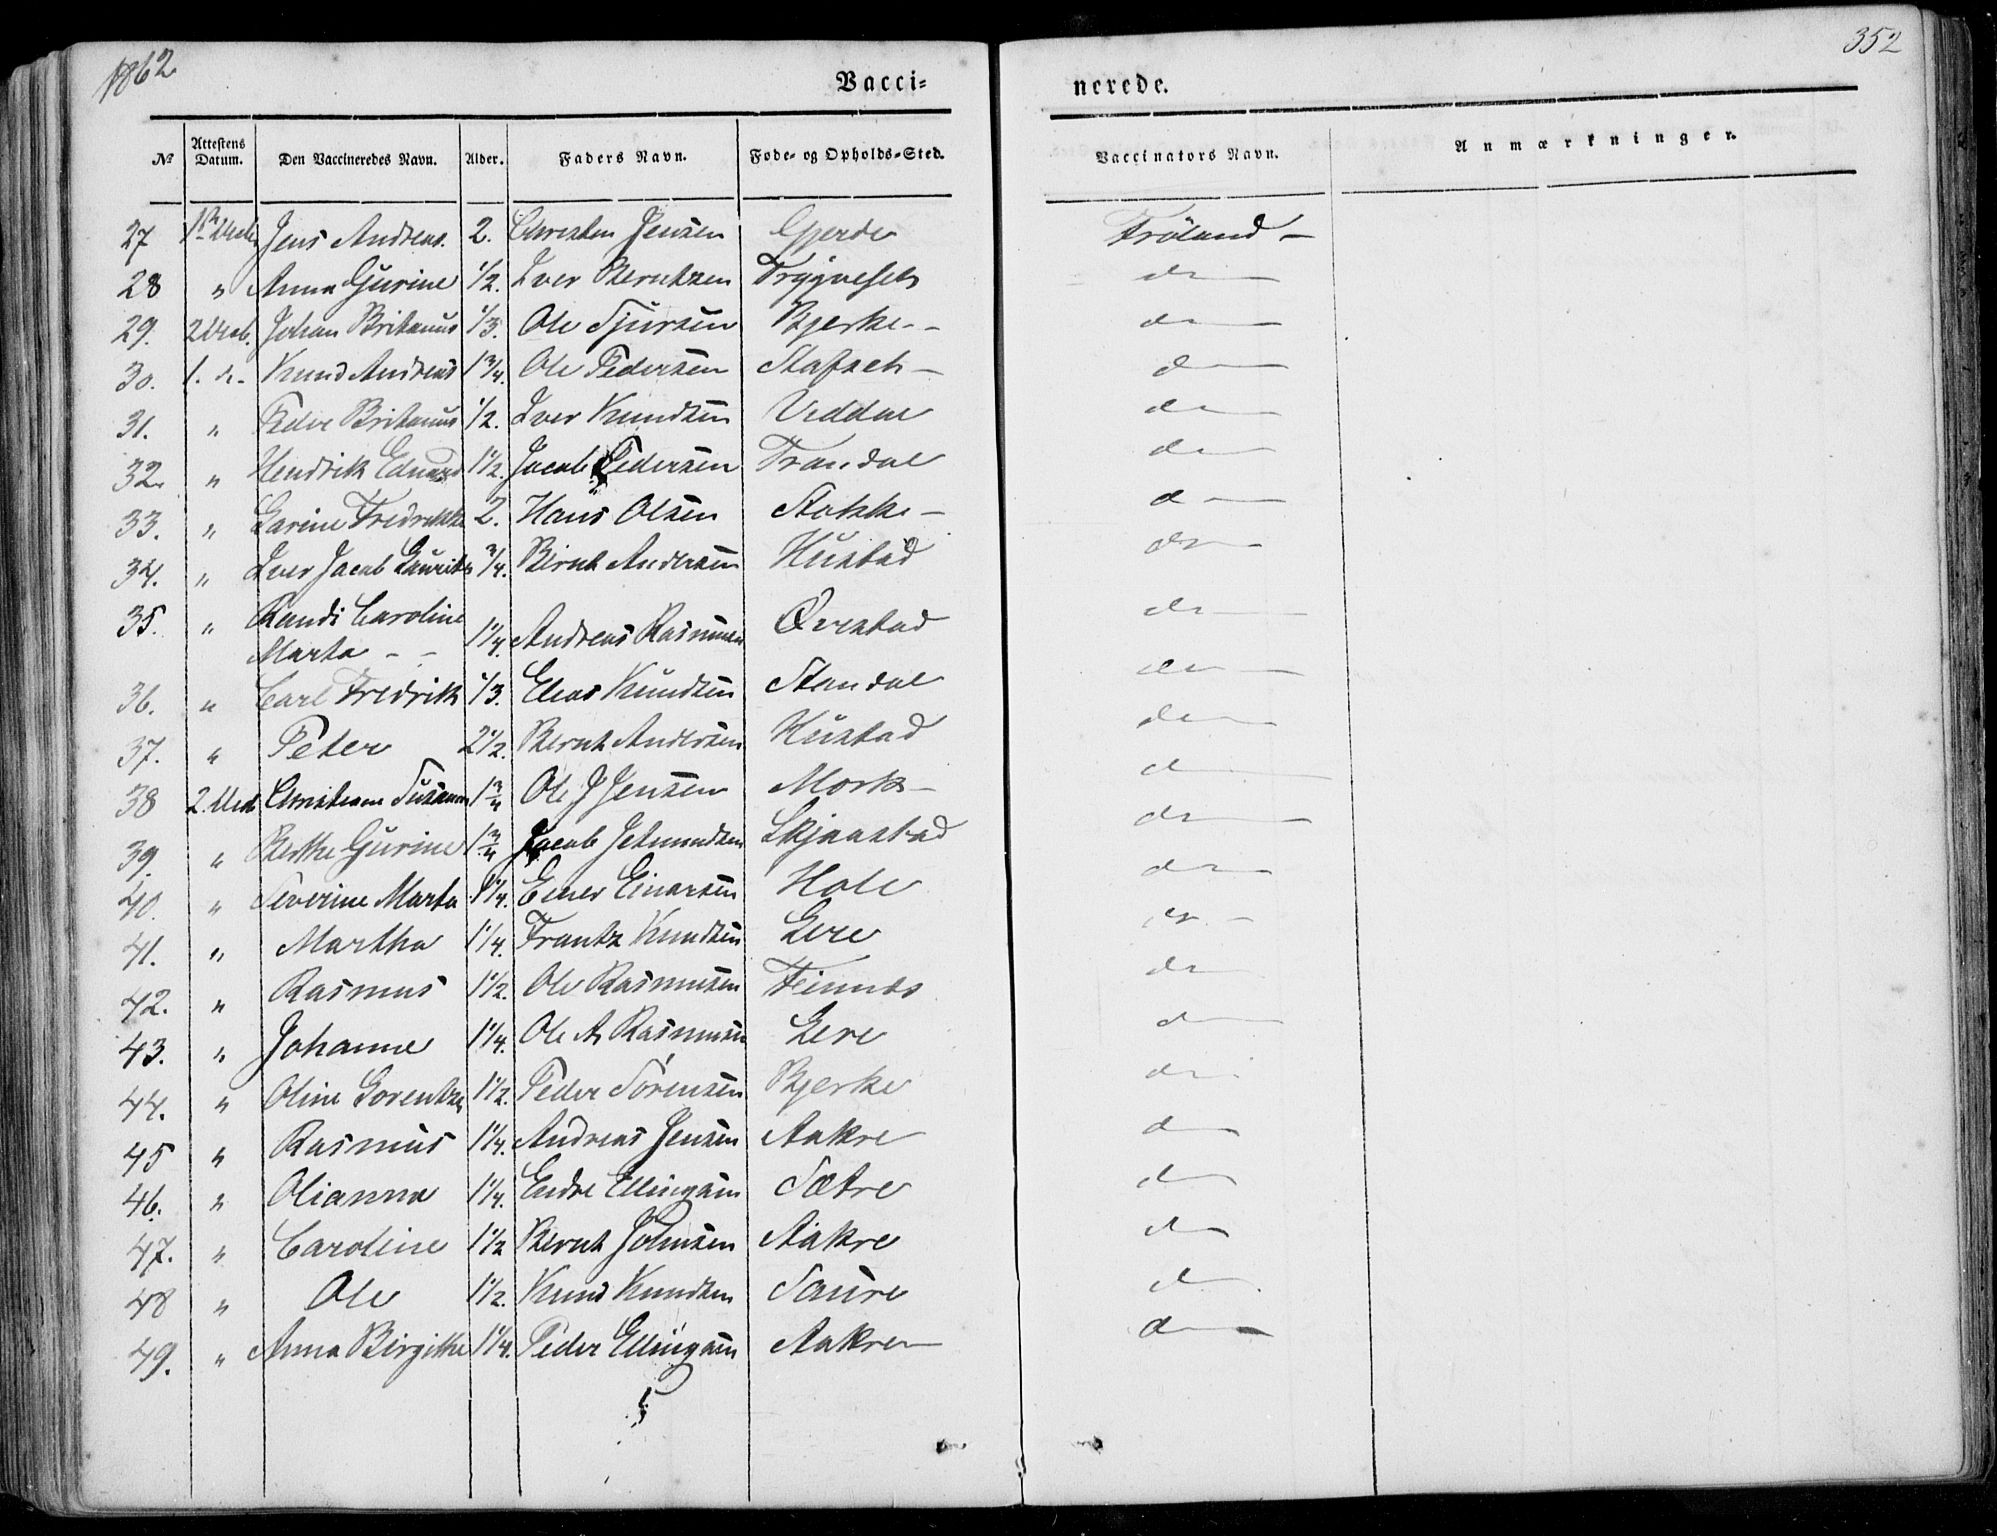 1862
352
Vacci-
nerede.
No Attestens Datum. Den Vaccineredes Navn. Alder. Faders Navn. Føde- og Opholds-Sted. Vaccinators Navn. Anmærkninger.
27 Jens Andreas. 2. Christen Jensen Gjerde Fröland -
28 " Anna Gurine 1/2. Iver Berntzen Tryggvesets do
29. Johan Britanus 1/3. Ole Sjursen Bjerke - do
30. 1. do Knud Andreas 1 3/4. Ole Pedersen Stafseth - do
31. " Peder Britanus 1/2. Iver Knudsen Viddal do
32. " Hendrik Eduard 1 1/2. Jacob Pedersen Trandal do
33. " Larine Fredrikke 2. Hans Olsen Stokke - do
34. " Iver Jacob Laurits 3/4. Bernt Andersen Hustad do
35. " Randi Caroline
Marta - - 1 1/4. Andreas Rasmusen Ørestad do
36. " Carl Fredrik 1/3. Elias Knudsen Standal do
37. " Peter 2 1/2. Bernt Andersen Hustad do
38 Ole J Jensen Mork - do
39. " Berthe Gurine 1 3/4 Jacob Jetmundsen Skjaastad do
40. " Severine Marta 1 1/4. Einer Einarsen Hole do
41. " Martha 1 1/4. Frantz Knudsen Lere do
42. " Rasmus 1 1/2. Ole Rasmusen Finnes do
43. " Johanne 1 1/4. Ole A. Rasmusen Lere do
44. " Oline Lorentze 1 1/2. Peder Sørensen Bjerke do
45 " Rasmus 1 1/4. Andreas Jensen Aakre do
46. " Olianna 1 1/4. Endre Ellingsen Sætre do
47. " Caroline 1 1/2 Bernt Johnsen Aakre do
48 " Ole 1 1/2. Knud Knudsen Saure do
49. " Anna Birgithe 1 1/4. Peder Ellingsen Aakre do